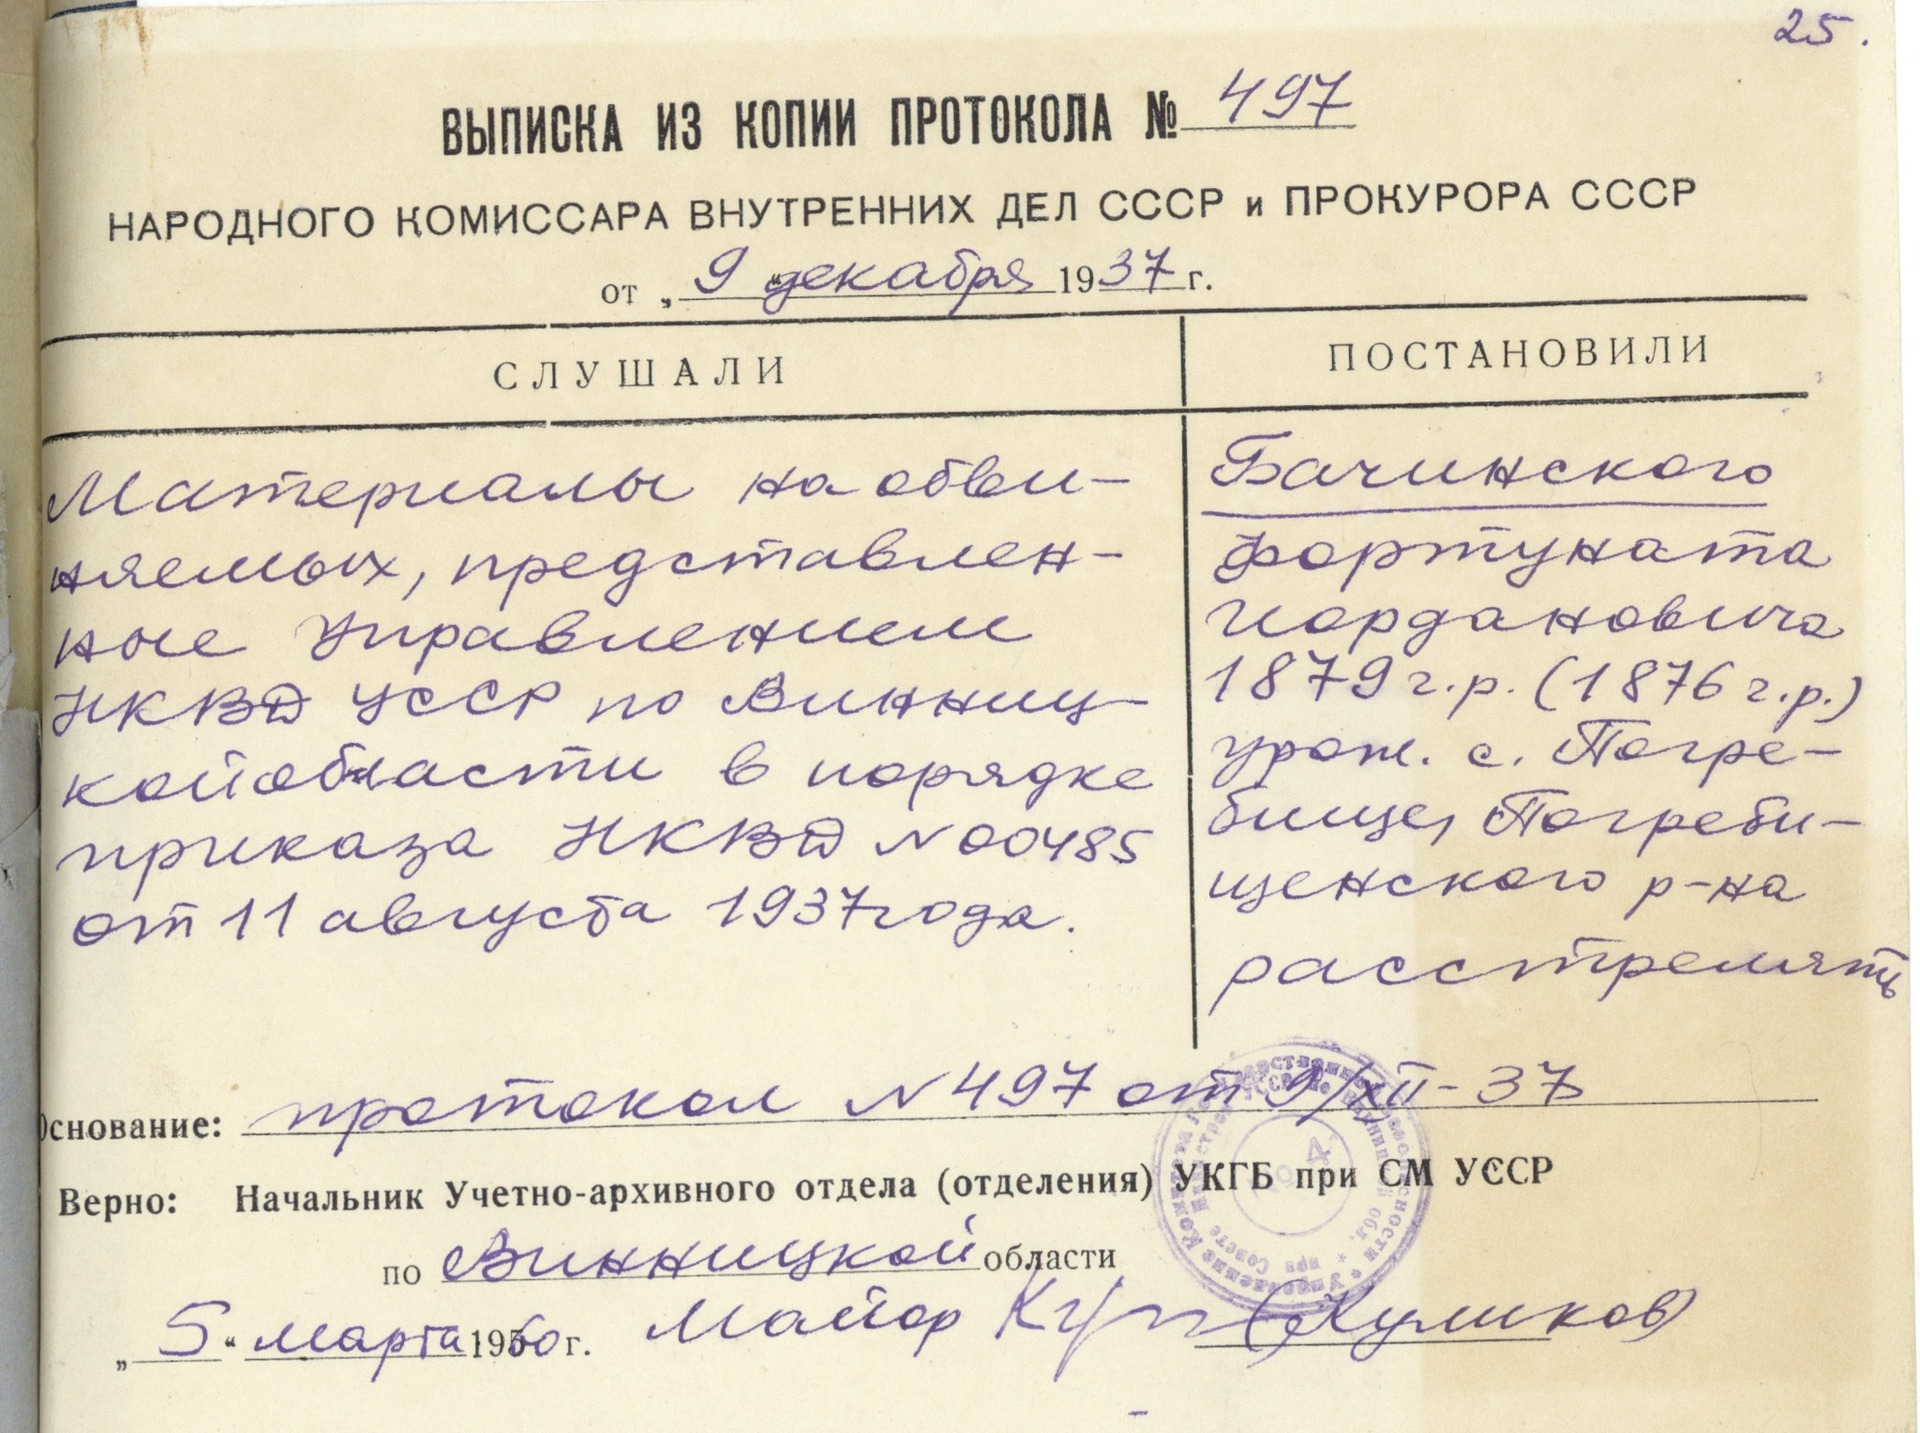 25.
ВЫПИСКА ИЗ КОПИИ ПРОТОКОЛА № 497
НАРОДНОГО КОМИССАРА ВНУТРЕННИХ ДЕЛ СССР и ПРОКУРОРА СССР
от „9" декабря 1937 г.
СЛУШАЛИ
Материалы на обви-
няемых, представлен-
ные Управлением
НКВД УССР по Винниц-
кой области в порядке
приказа НКВД N 00485
от 11 августа 1937 года.
ПОСТАНОВИЛИ
Бачинского
Фортуната
Иордановича
1879 г.р. (1876 г.р.)
урож. с. Погре-
бище, Погреби-
щенского р-на
расстрелять
Основание: протокол N 497 от 9/XII-37
Верно: Начальник Учетно-архивного отдела (отделения) УКГБ при СМ УССР
по Винницкой области
„5" марта 1960 г. Майор (Куликов)